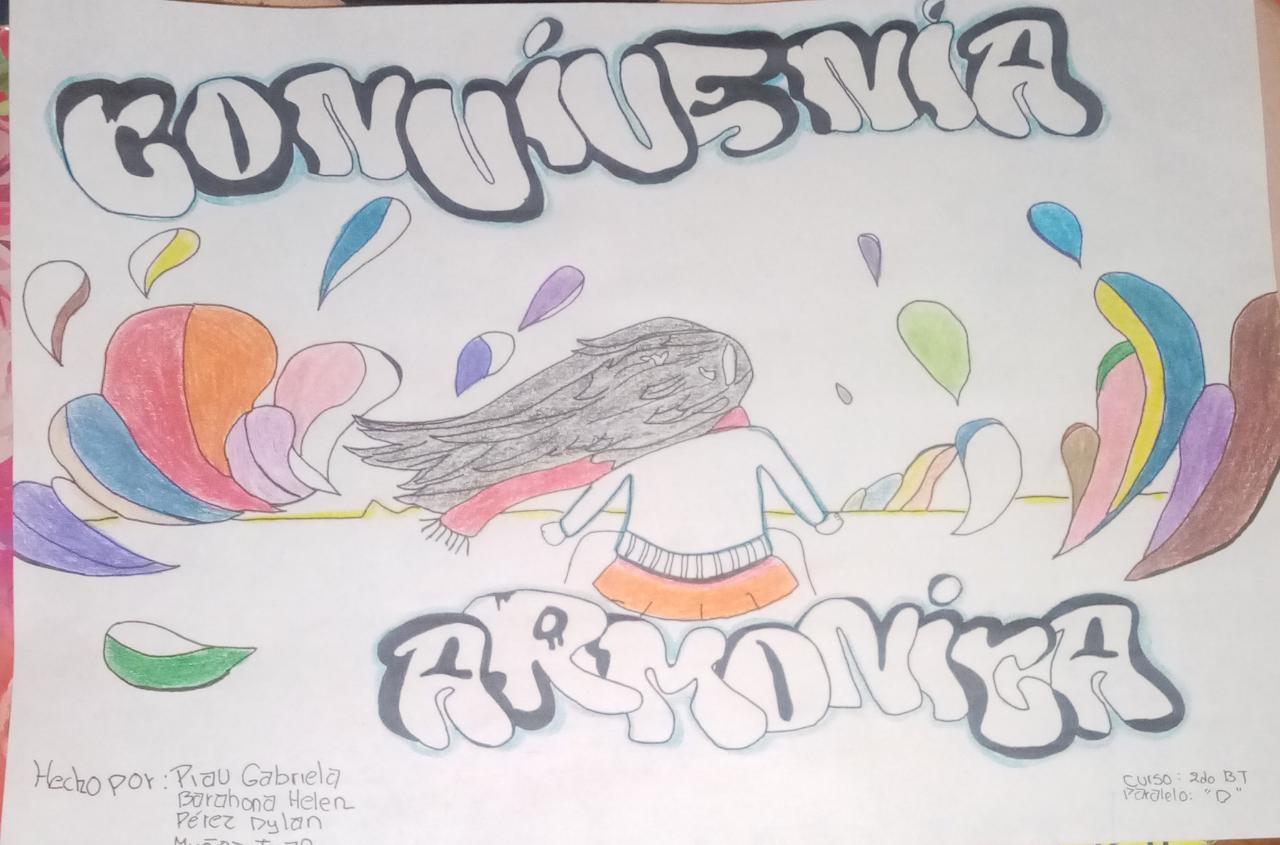 CONVIVENIA
ARMONICA
Hecho por: Piau Gabriela
Barahona Helen
Pérez Dylan
Curso: 2do BT
Paralelo: "D"